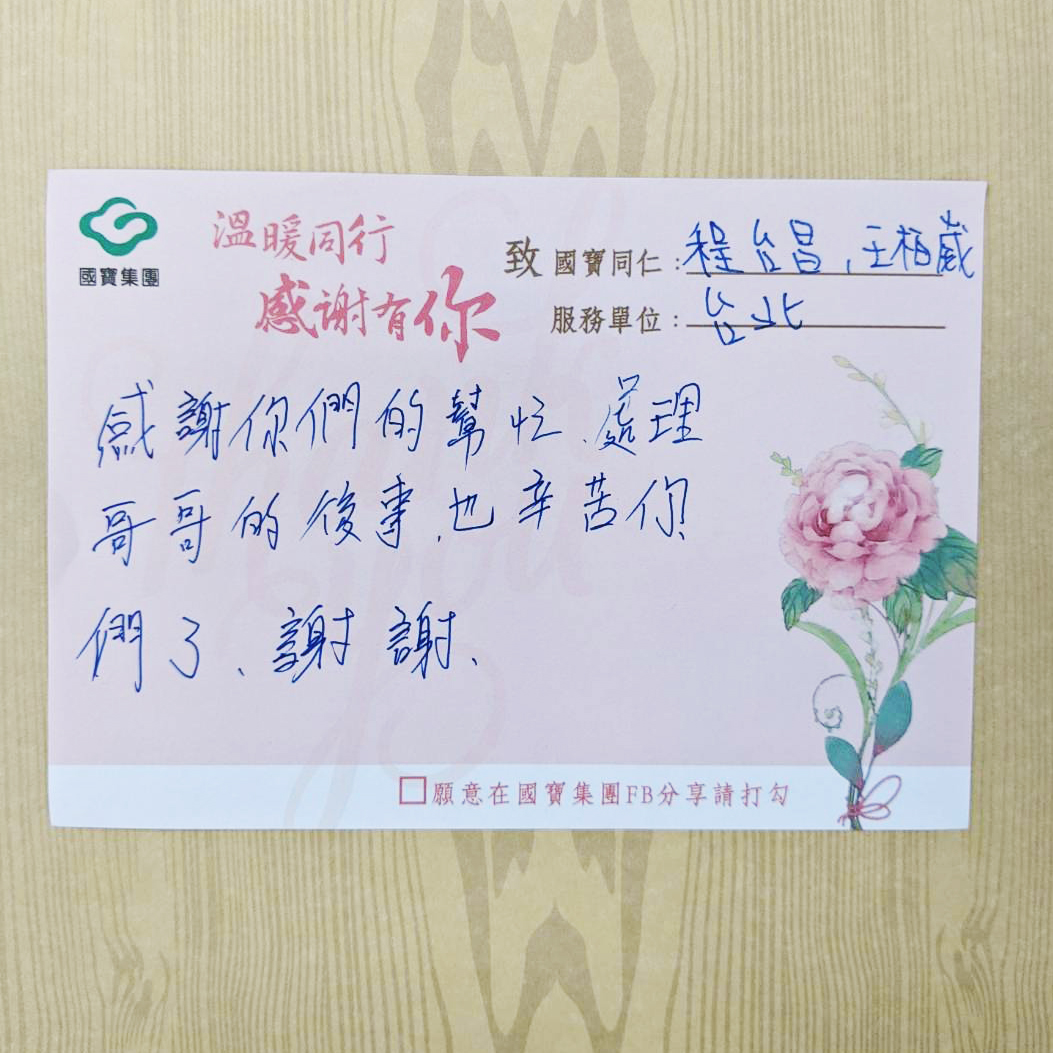 國寶集團
溫暖同行
感謝有你
致 國寶同仁：程台昌，王柏葳
服務單位：台北
感謝你們的幫忙、處理
哥哥的後事，也辛苦你
們了、謝謝、
□願意在國寶集團FB分享請打勾